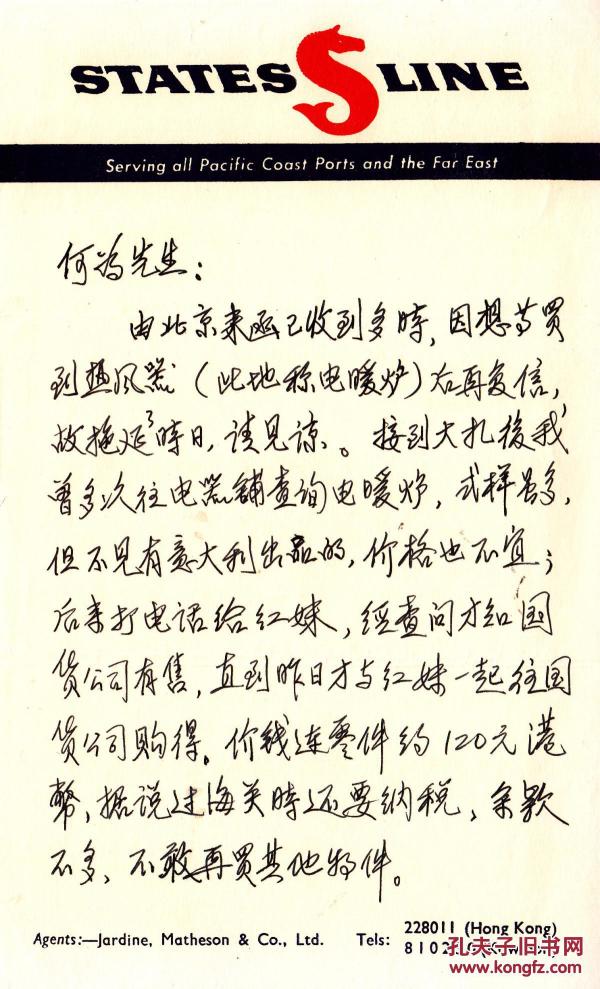 STATES LINE
Serving all Pacific Coast Ports and the Far East
何为先生：
由北京来函已收到多時，因想等買
到热风器（此地称电暖炉）后再复信，
故拖延了時日，请见谅。接到大扎後，我
曾多次往电器舖查询电暖炉，式样虽多，
但不见有意大利出品的，价格也不宜；
后来打电话给红妹，經查问才知国
货公司有售，直到昨日才与红妹一起往国
货公司购得。价钱连零件约120元港
幣，据说过海关時还要纳税，余款
不多，不敢再買其他物件。
Agents:—Jardine, Matheson & Co., Ltd. Tels: 228011 (Hong Kong)
孔夫子旧书网
www.kongfz.com